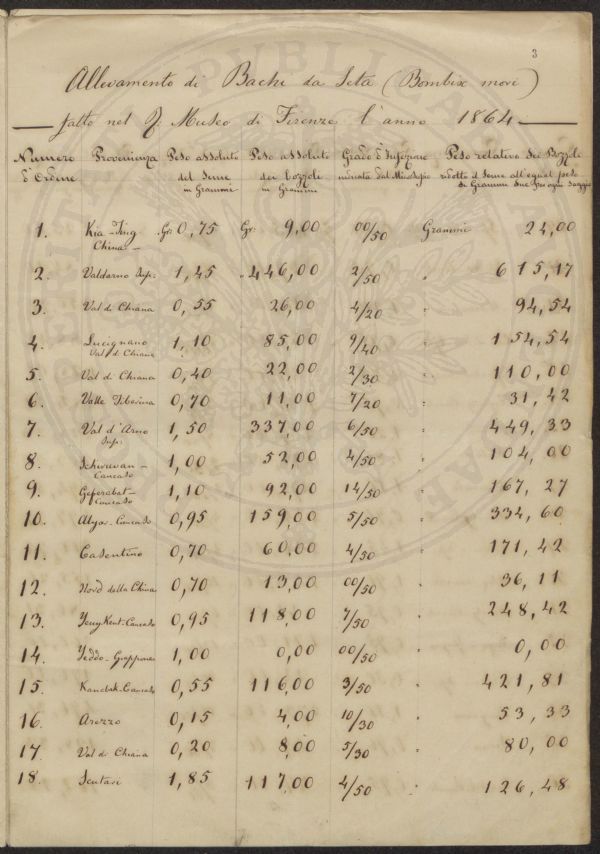 3
Allevamento di Bachi da Seta (Bombix mori)
fatto nel R. Museo di Firenze l'anno 1864
Numero d'Ordine Provenienza Peso assoluto del Seme in Grammi Peso assoluto dei bozzoli in Grammi Grado d'Infezione Peso relativo dei Bozzoli
1. Kia-Ting China Gr. 0,75 Gr. 9,00 00/50 Grammi 24,00
2. Valdarno Sup. 1,45 " 446,00 2/50 " 615,17
3. Val di Chiana 0,55 26,00 4/20 " 94,54
4. Lucignano Val di Chiana 1,10 85,00 9/40 " 154,54
5. Val di Chiana 0,40 22,00 2/30 " 110,00
6. Valle Tiberina 0,70 11,00 7/20 " 31,42
7. Val d'Arno Sup. 1,50 337,00 6/50 " 449,33
8. Caucaso 1,00 52,00 4/50 " 104,00
9. Caucaso 1,10 92,00 14/50 " 167,27
10. Caucaso 0,95 159,00 5/50 " 334,60
11. Casentino 0,70 60,00 4/50 " 171,42
12. Nord della China 0,70 13,00 00/50 " 36,11
13. Caucaso 0,95 118,00 7/50 " 248,42
14. Yeddo-Giappone 1,00 0,00 00/50 " 0,00
15. Caucaso 0,55 116,00 3/50 " 421,81
16. Arezzo 0,15 4,00 10/30 " 53,33
17. Val di Chiana 0,20 8,00 5/30 " 80,00
18. Scutari 1,85 117,00 4/50 " 126,48